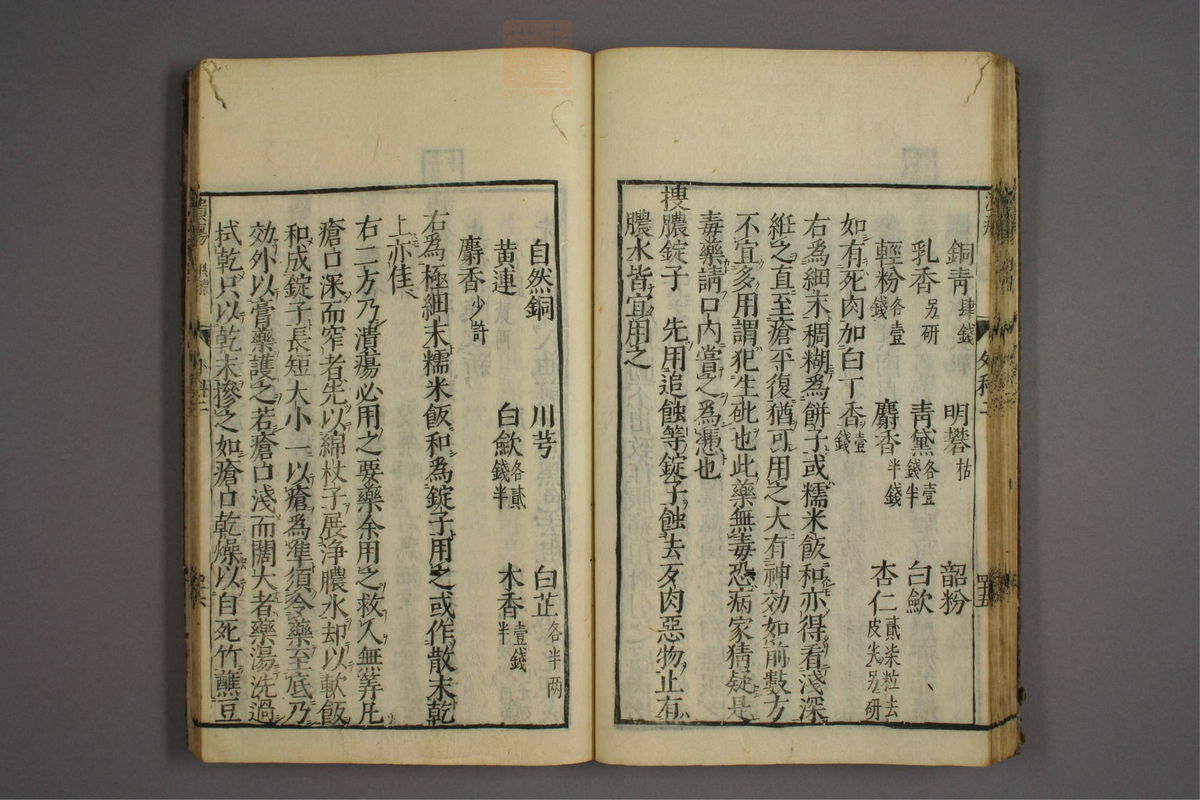 銅青肆錢 明礬枯 韶粉
乳香另研 青黛各壹錢半 白斂
輕粉各壹錢 麝香半錢 杏仁貳柒粒去皮尖另研
如有死肉加白丁香壹錢
右為細末稠糊為餅子或糯米飯和亦得看淺深
紝之直至瘡平復猶可用之大有神効如前數方
不宜多用謂犯生砒也此藥無毒恐病家猜疑是
毒藥請口內嘗之為憑也
摟膿錠子 先用追蝕等錠子蝕去歹肉惡物止有
膿水皆宜用之
自然銅 川芎 白芷各半兩
黃連 白斂各貳錢半 木香壹錢半
麝香少許
右為極細末糯米飯和為錠子用之或作散末乾
上亦佳
右二方乃潰瘍必用之要藥余用之救人無筭凡
瘡口深而窄者先以綿杖子展淨膿水却以軟飯
和成錠子長短大小一以瘡為準須令藥至底乃
効外以膏藥護之若瘡口淺而闊大者藥湯洗過
拭乾只以乾末摻之如瘡口乾燥以自死竹蘸豆